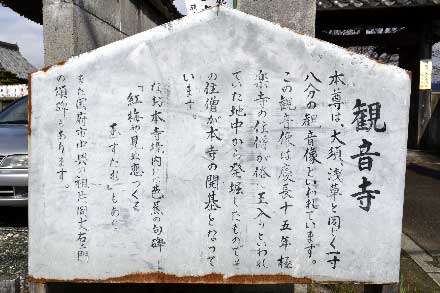 観音寺
本尊は、大須、浅草と同じく一寸
八分の観音像といわれています。
この観音像は慶長十五年極
楽寺の住僧が俗に三入りといわれ
ていた地中から発掘したものでそ
の住僧が本寺の開基となって
います。
なお本寺境内に芭蕉の句碑
「紅梅や見ぬ恋つくる
玉すだれ」もあり
また国府市中興の祖片岡丈右ヱ門
の頌碑もあります。